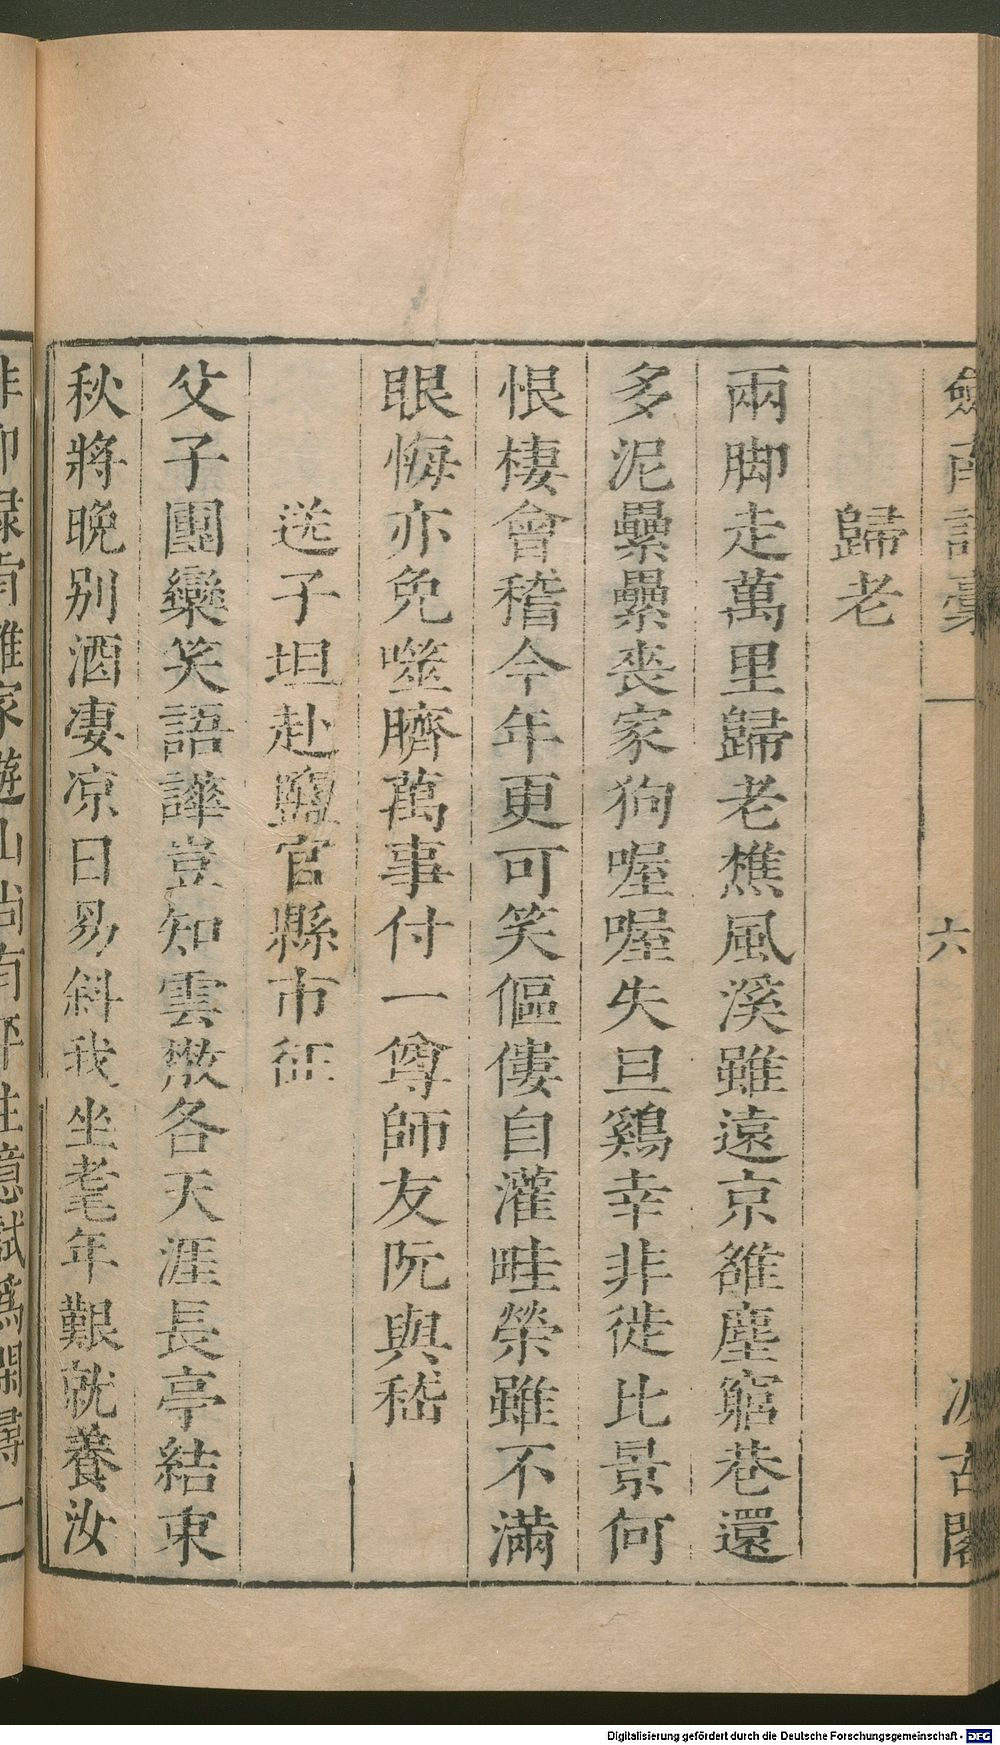 劒南詩稾
一
六
汲古閣
歸老
兩脚走萬里歸老樵風溪雖遠京雒塵窮巷還
多泥纍纍喪家狗喔喔失旦鷄幸非徙比景何
恨棲會稽今年更可笑傴僂自灌畦榮雖不滿
眼悔亦免噬臍萬事付一尊師友阮與嵇
送子坦赴鹽官縣市征
父子團欒笑語譁豈知雲散各天涯長亭結束
秋將晚别酒凄凉日易斜我坐耄年艱就養汝
家遊山尚有平生意試爲閑尋一
Digitalisierung gefördert durch die Deutsche Forschungsgemeinschaft - DFG